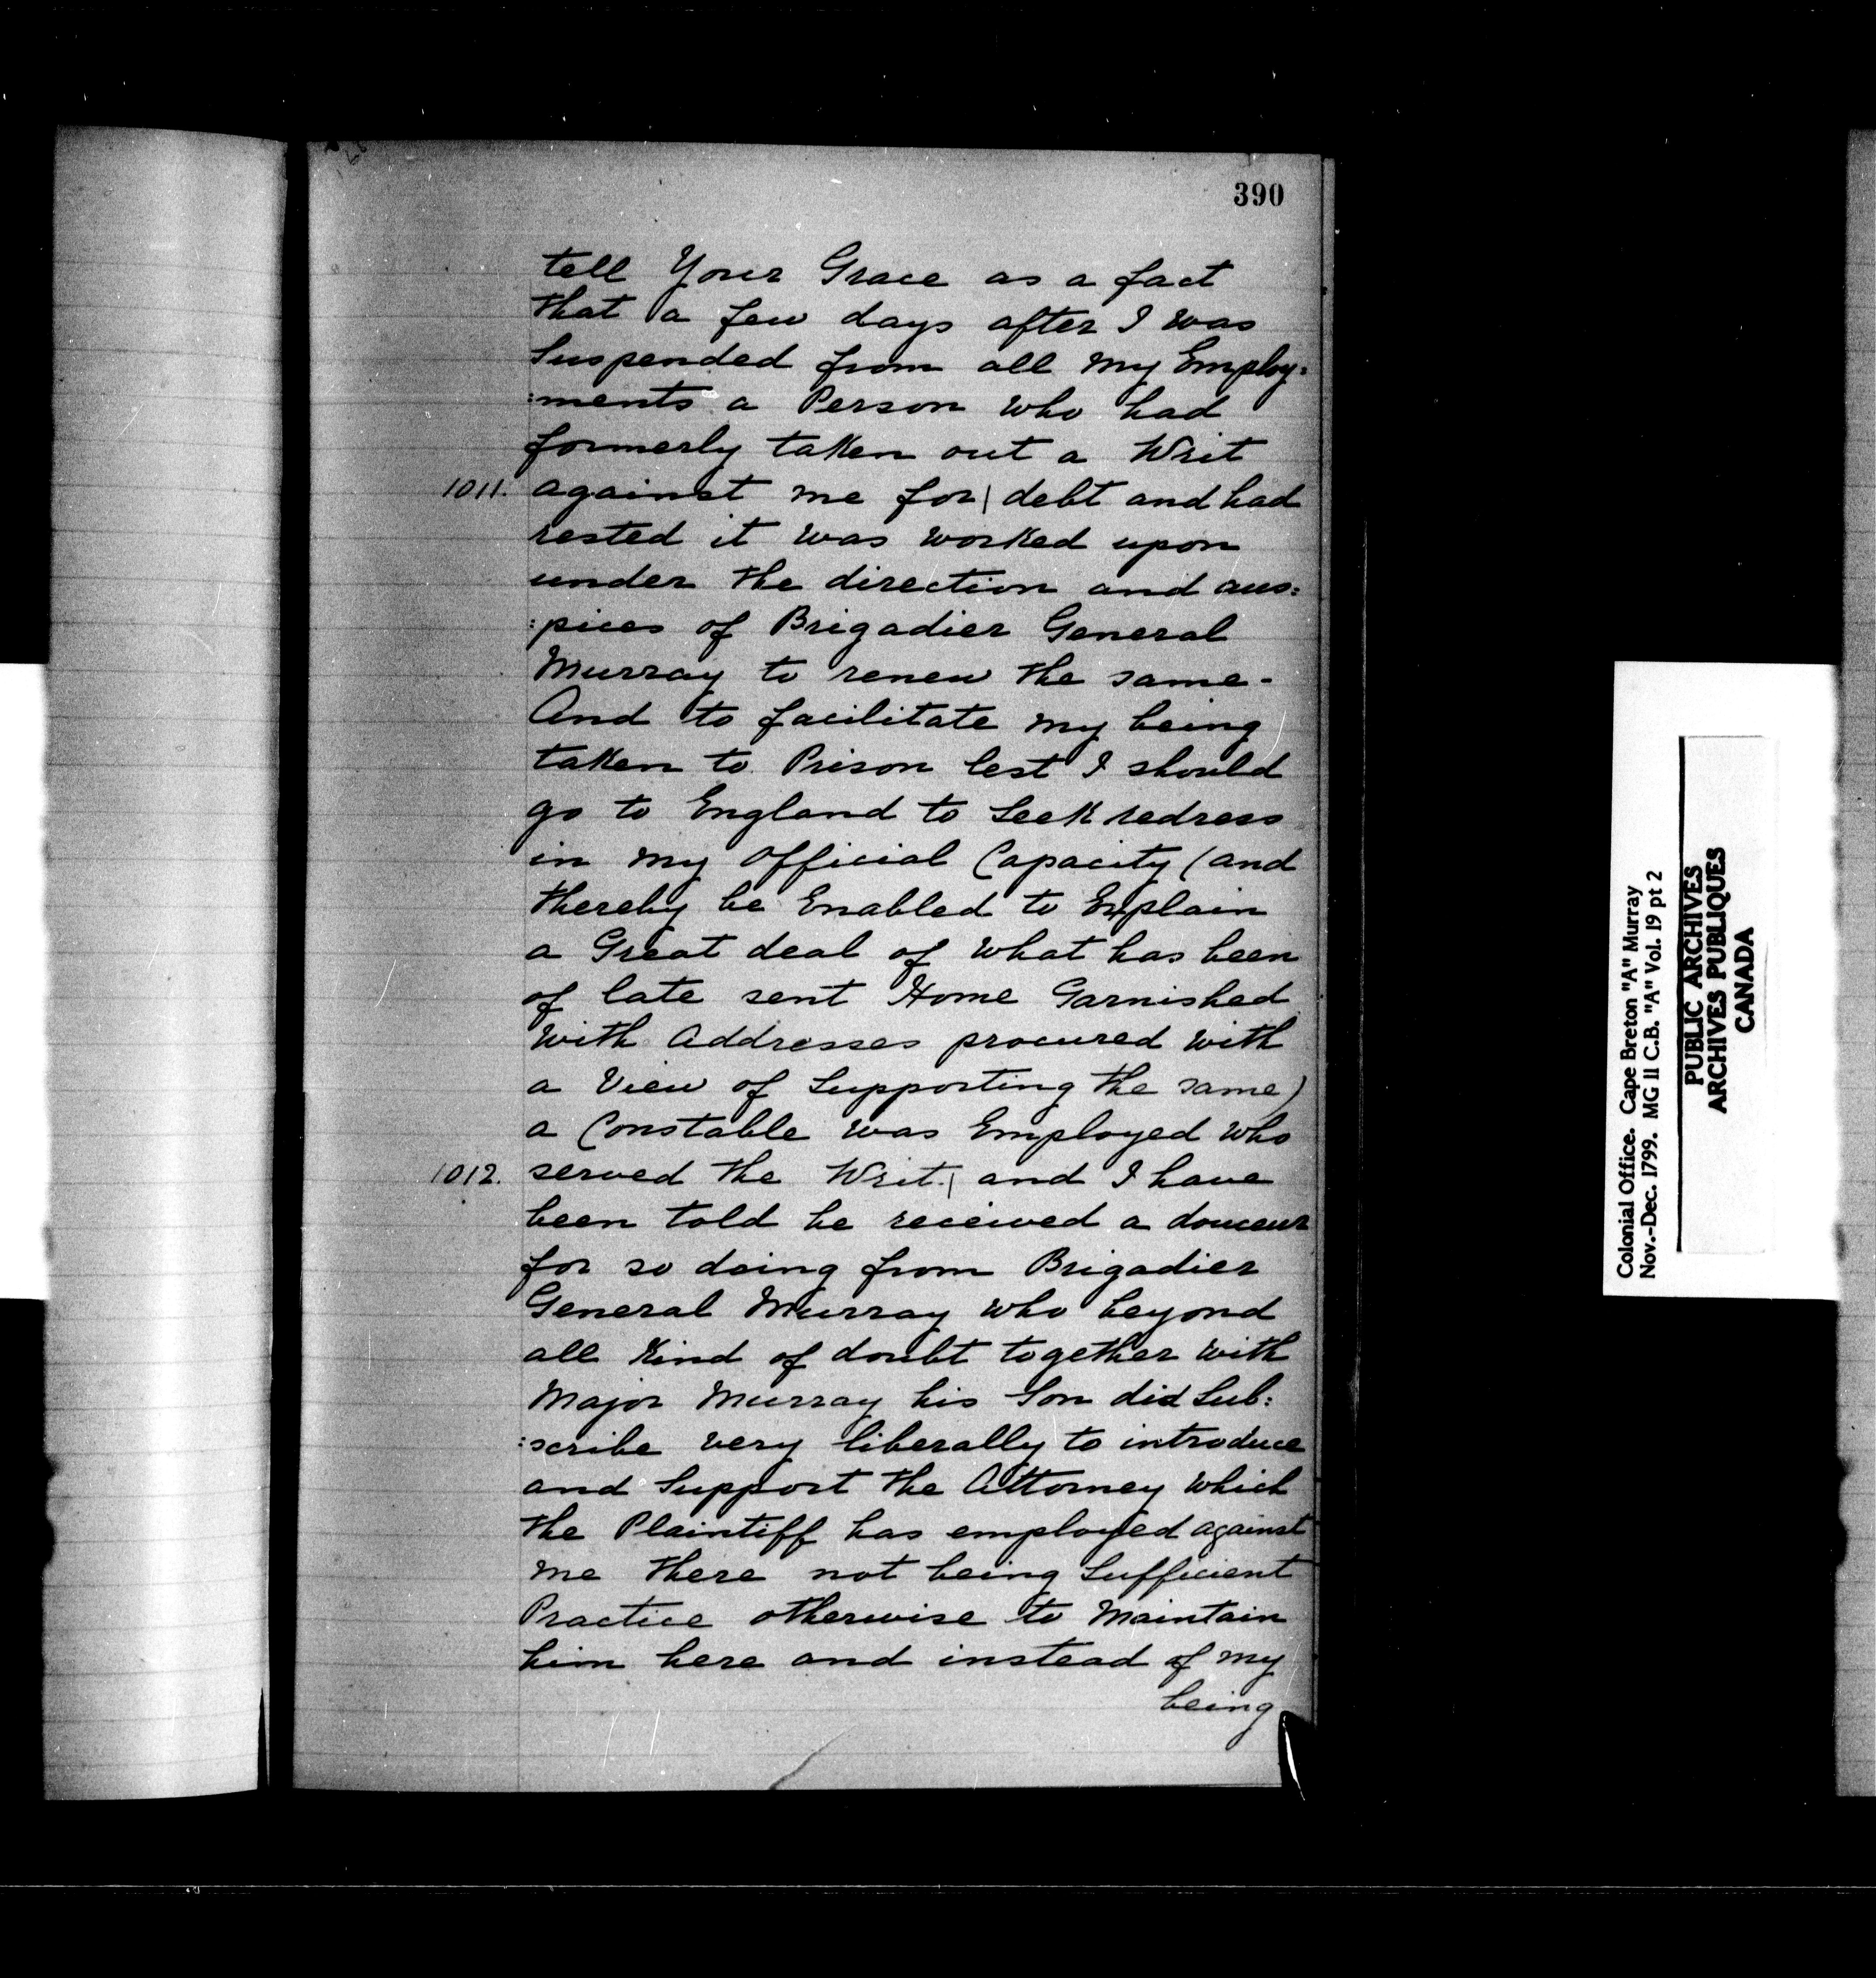 390
tell Your Grace as a fact
that a few days after I was
Suspended from all my Employ:
:ments a Person who had
formerly taken out a Writ
1011. against me for | debt and had
rested it was worked upon
under the direction and aus:
:pices of Brigadier General
Murray to renew the same -
And to facilitate my being
taken to Prison lest I should
go to England to Seek redress
in my Official Capacity (and
thereby be Enabled to Explain
a Great deal of what has been
of late sent Home Garnished
with Addresses procured with
a View of Supporting the same)
a Constable was Employed who
1012. served the Writ. | and I have
been told he received a douceur
for so doing from Brigadier
General Murray who beyond
all Kind of doubt together with
Major Murray his Son did Sub:
:scribe very liberally to introduce
and Support the Attorney which
the Plaintiff has employed against
me there not being Sufficient
Practice otherwise to Maintain
him here and instead of my
being
Colonial Office. Cape Breton "A" Murray
Nov.-Dec. 1799. MG 11 C.B. "A" Vol. 19 pt 2
PUBLIC ARCHIVES
ARCHIVES PUBLIQUES
CANADA